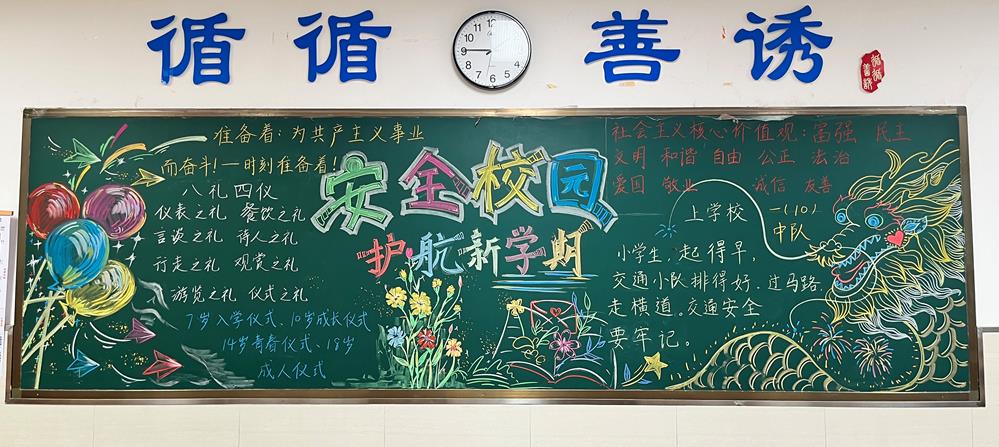 循循善诱
循循
善诱
12
11 1
10 2
9 3
8 4
7 5
6
准备着:为共产主义事业
而奋斗!一时刻准备着!
八礼四仪
仪表之礼 餐饮之礼
言谈之礼 待人之礼
行走之礼 观赏之礼
游览之礼 仪式之礼
7岁入学仪式、10岁成长仪式
14岁青春仪式、18岁
成人仪式
安全校园
护航新学期
社会主义核心价值观:富强 民主
文明 和谐 自由 公正 法治
爱国 敬业 诚信 友善
上学校 一(10)
中队
小学生,起得早,
交通小队排得好,过马路,
走横道.交通安全
要牢记。